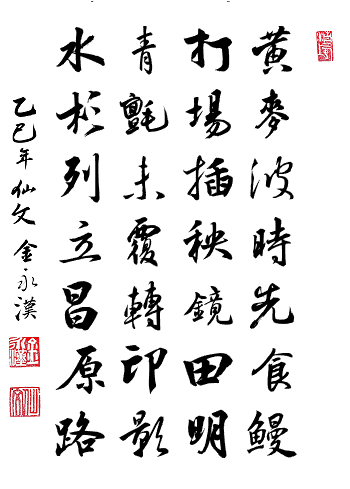 黃麥波時先食鰻
打場插秧鏡田明
青氈未覆轉印影
水杉列立昌原路
乙巳年仙文金永漢